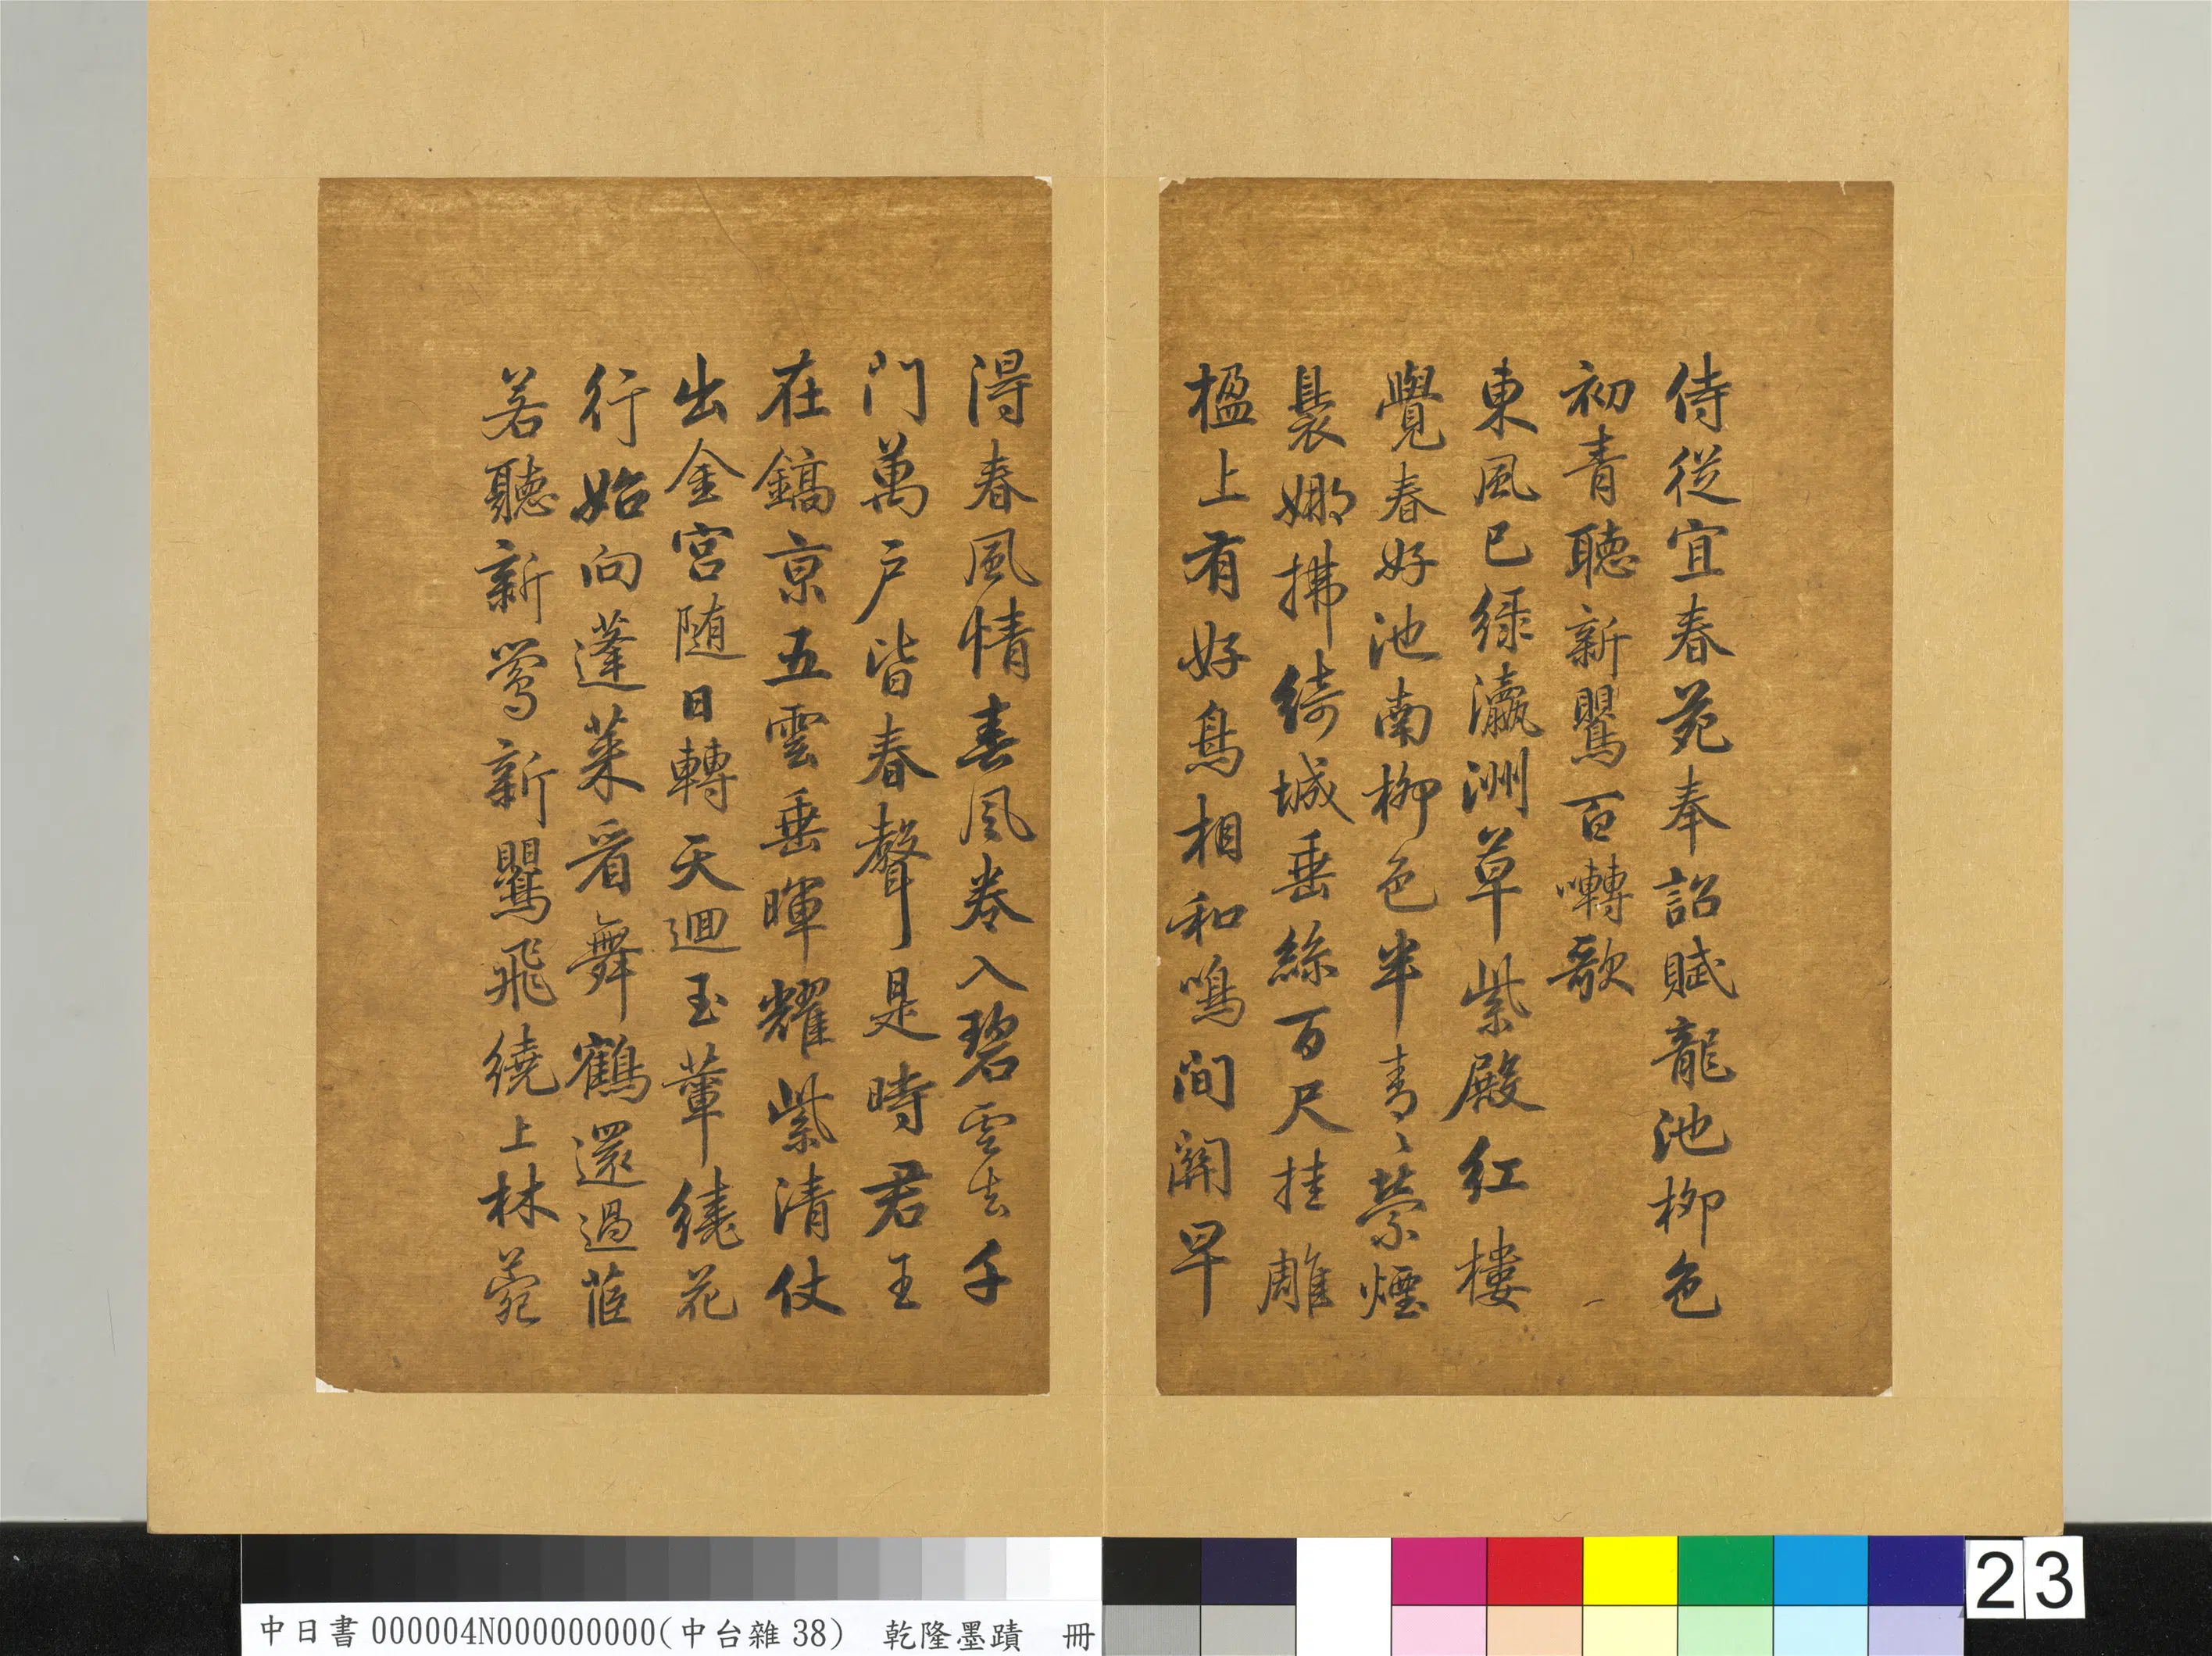 侍從宜春苑奉詔賦龍池柳色
初青聽新鸎百囀歌
東風已綠瀛洲草紫殿紅樓
覺春好池南柳色半青青縈煙
裊娜拂綺城垂絲百尺挂雕
楹上有好鳥相和鳴間關早
得春風情春風卷入碧雲去千
門萬戶皆春聲是時君王
在鎬京五雲垂暉耀紫清仗
出金宮随日轉天迴玉輦繞花
行始向蓬萊看舞鶴還過茝
若聽新鶯新鸎飛繞上林菀
中日書 000004N000000000(中台雜 38) 乾隆墨蹟 冊
23